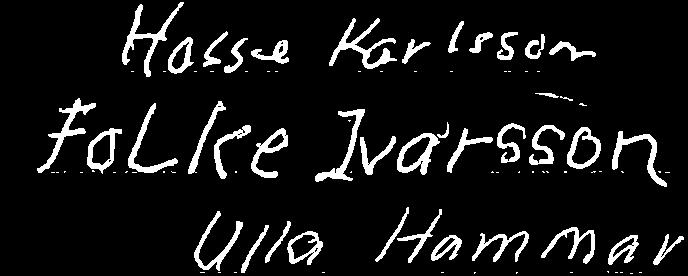 Hasse Karlsson
Folke Ivarsson
Ulla Hammar